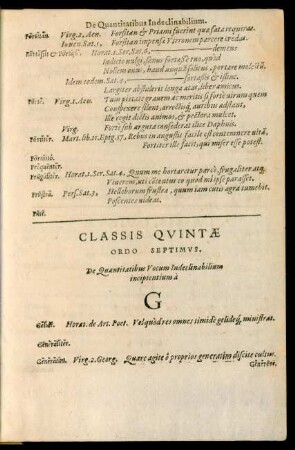 De Quantitatibus Indeclinabilium.
Virg. 2. Aen. Forsitan & Priami fuerint quæ fata requiras.
Iuuen. Sat. 1. Forsitan impensæ Virronem parcere credas.
Horat. 1. Ser. Sat. 6. demens
Iudicio vulgi, sanus fortasse tuo, quod
Nollem onus, haud vnquam solitus, portare molestũ.
Idem eodem Sat. 4. fortassis & istinc
Largiter abstulerit longa ætas, liber amicus.
Virg. 1. Aen. Tum pietate grauem ac meritis si fortè virum quem
Conspexere silent, arrectisq; auribus adstant,
Ille regit dictis animos, & pectora mulcet.
Virg. Fortè sub arguta consederat ilice Daphnis.
Mart. lib. 11. Epig. 57. Rebus in angustis facile est contemnere vitã,
Fortiter ille facit, qui miser esse potest.
Horat. 1. Ser. Sat. 4. Quum me hortaretur parcè, frugaliter atq;
Viuerem, vti cõtentus eo quod mi ipse parasset.
Pers. Sat. 3. Helleborum frustra, quum iam cutis ægra tumebit.
Poscentes videas.
CLASSIS QVINTÆ
ORDO SEPTIMVS.
De Quantitatibus Vocum Indeclinabilium
incipientium à
G
Horat. de Art. Poet. Vel quòd res omnes timidè gelideq; ministrat.
Generaliter.
Generatim. Virg. 2. Georg. Quare agite ô proprios generatim discite cultus.